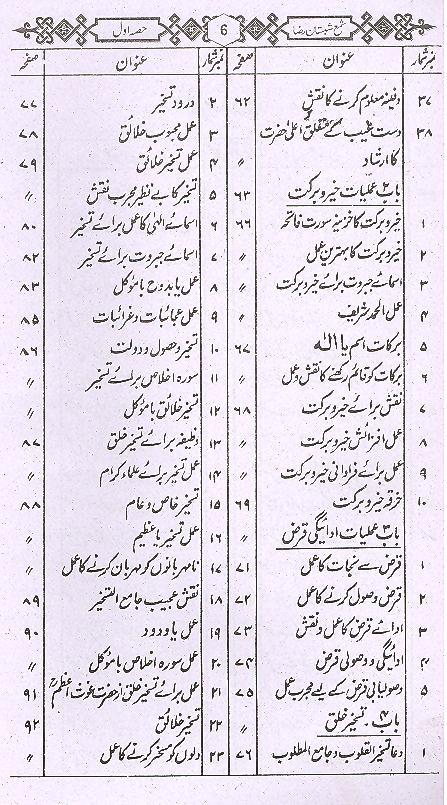 شمع شبستان رضا 6 حصہ اول
نمبر شمار عنوان صفحہ
۳۷ دفینہ معلوم کرنے کا نقش ۶۲
۳۸ دست غیب کے متعلق اعلیٰ حضرت
کا ارشاد 〃
باب ۲ عملیات خیر و برکت ۶۳
۱ خیر و برکت کا خزینہ سورت فاتحہ ۶۶
۲ خیر و برکت کا بہترین عمل 〃
۳ اسمائے جبروت برائے خیر و برکت 〃
۴ عمل الحمد شریف 〃
۵ برکات اسم یا اللہ ۶۷
۶ برکات کو قائم رکھنے کا نقش و عمل 〃
۷ نقش برائے خیر و برکت ۶۸
۸ عمل افزائش خیر و برکت 〃
۹ عمل برائے فراوانی خیر و برکت 〃
۱۰ خرقہ خیر و برکت ۶۹
باب ۳ عملیات ادائیگی قرض 〃
۱ قرض سے نجات کا عمل ۷۱
۲ قرض وصول کرنے کا عمل ۷۲
۳ ادائے قرض کا عمل و نقش ۷۳
۴ ادائیگی و وصولی قرض ۷۴
۵ وصولیابی قرض کے لیے مجرب عمل ۷۵
باب ۴۔ تسخیر خلق
۱ دعا تسخیر القلوب و جامع المطلوب ۷۶
نمبر شمار عنوان صفحہ
۲ درود تسخیر ۷۷
۳ عمل محبوب خلائق ۷۸
۴ عمل تسخیر خلائق ۷۹
۵ تسخیر کا بے نظیر مجرب نقش 〃
۶ اسمائے الٰہی کا عمل برائے تسخیر ۸۰
۷ اسمائے جبروت برائے تسخیر ۸۲
۸ عمل یا بدوح با مؤکل ۸۳
۹ عمل عجائبات و غرائبات ۸۵
۱۰ تسخیر و حصول و دولت ۸۶
۱۱ سورہ اخلاص برائے تسخیر 〃
۱۲ تسخیر خلائق با مؤکل 〃
۱۳ وظیفہ برائے تسخیر خلق ۸۷
۱۴ عمل تسخیر برائے علماء کرام 〃
۱۵ تسخیر خاص و عام ۸۸
۱۶ عمل تسخیر یا عظیم 〃
۱۷ نامہربانوں کو مہربان کرنے کا عمل 〃
۱۸ نقش عجیب جامع التسخیر ۸۹
۱۹ عمل یا ودود ۹۰
۲۰ عمل سورہ اخلاص با مؤکل 〃
۲۱ عمل برائے تسخیر خلق از حضرت غوث اعظم ؒ ۹۱
۲۲ تسخیر خلائق ۹۲
۲۳ دلوں کو مسخر کرنے کا عمل 〃